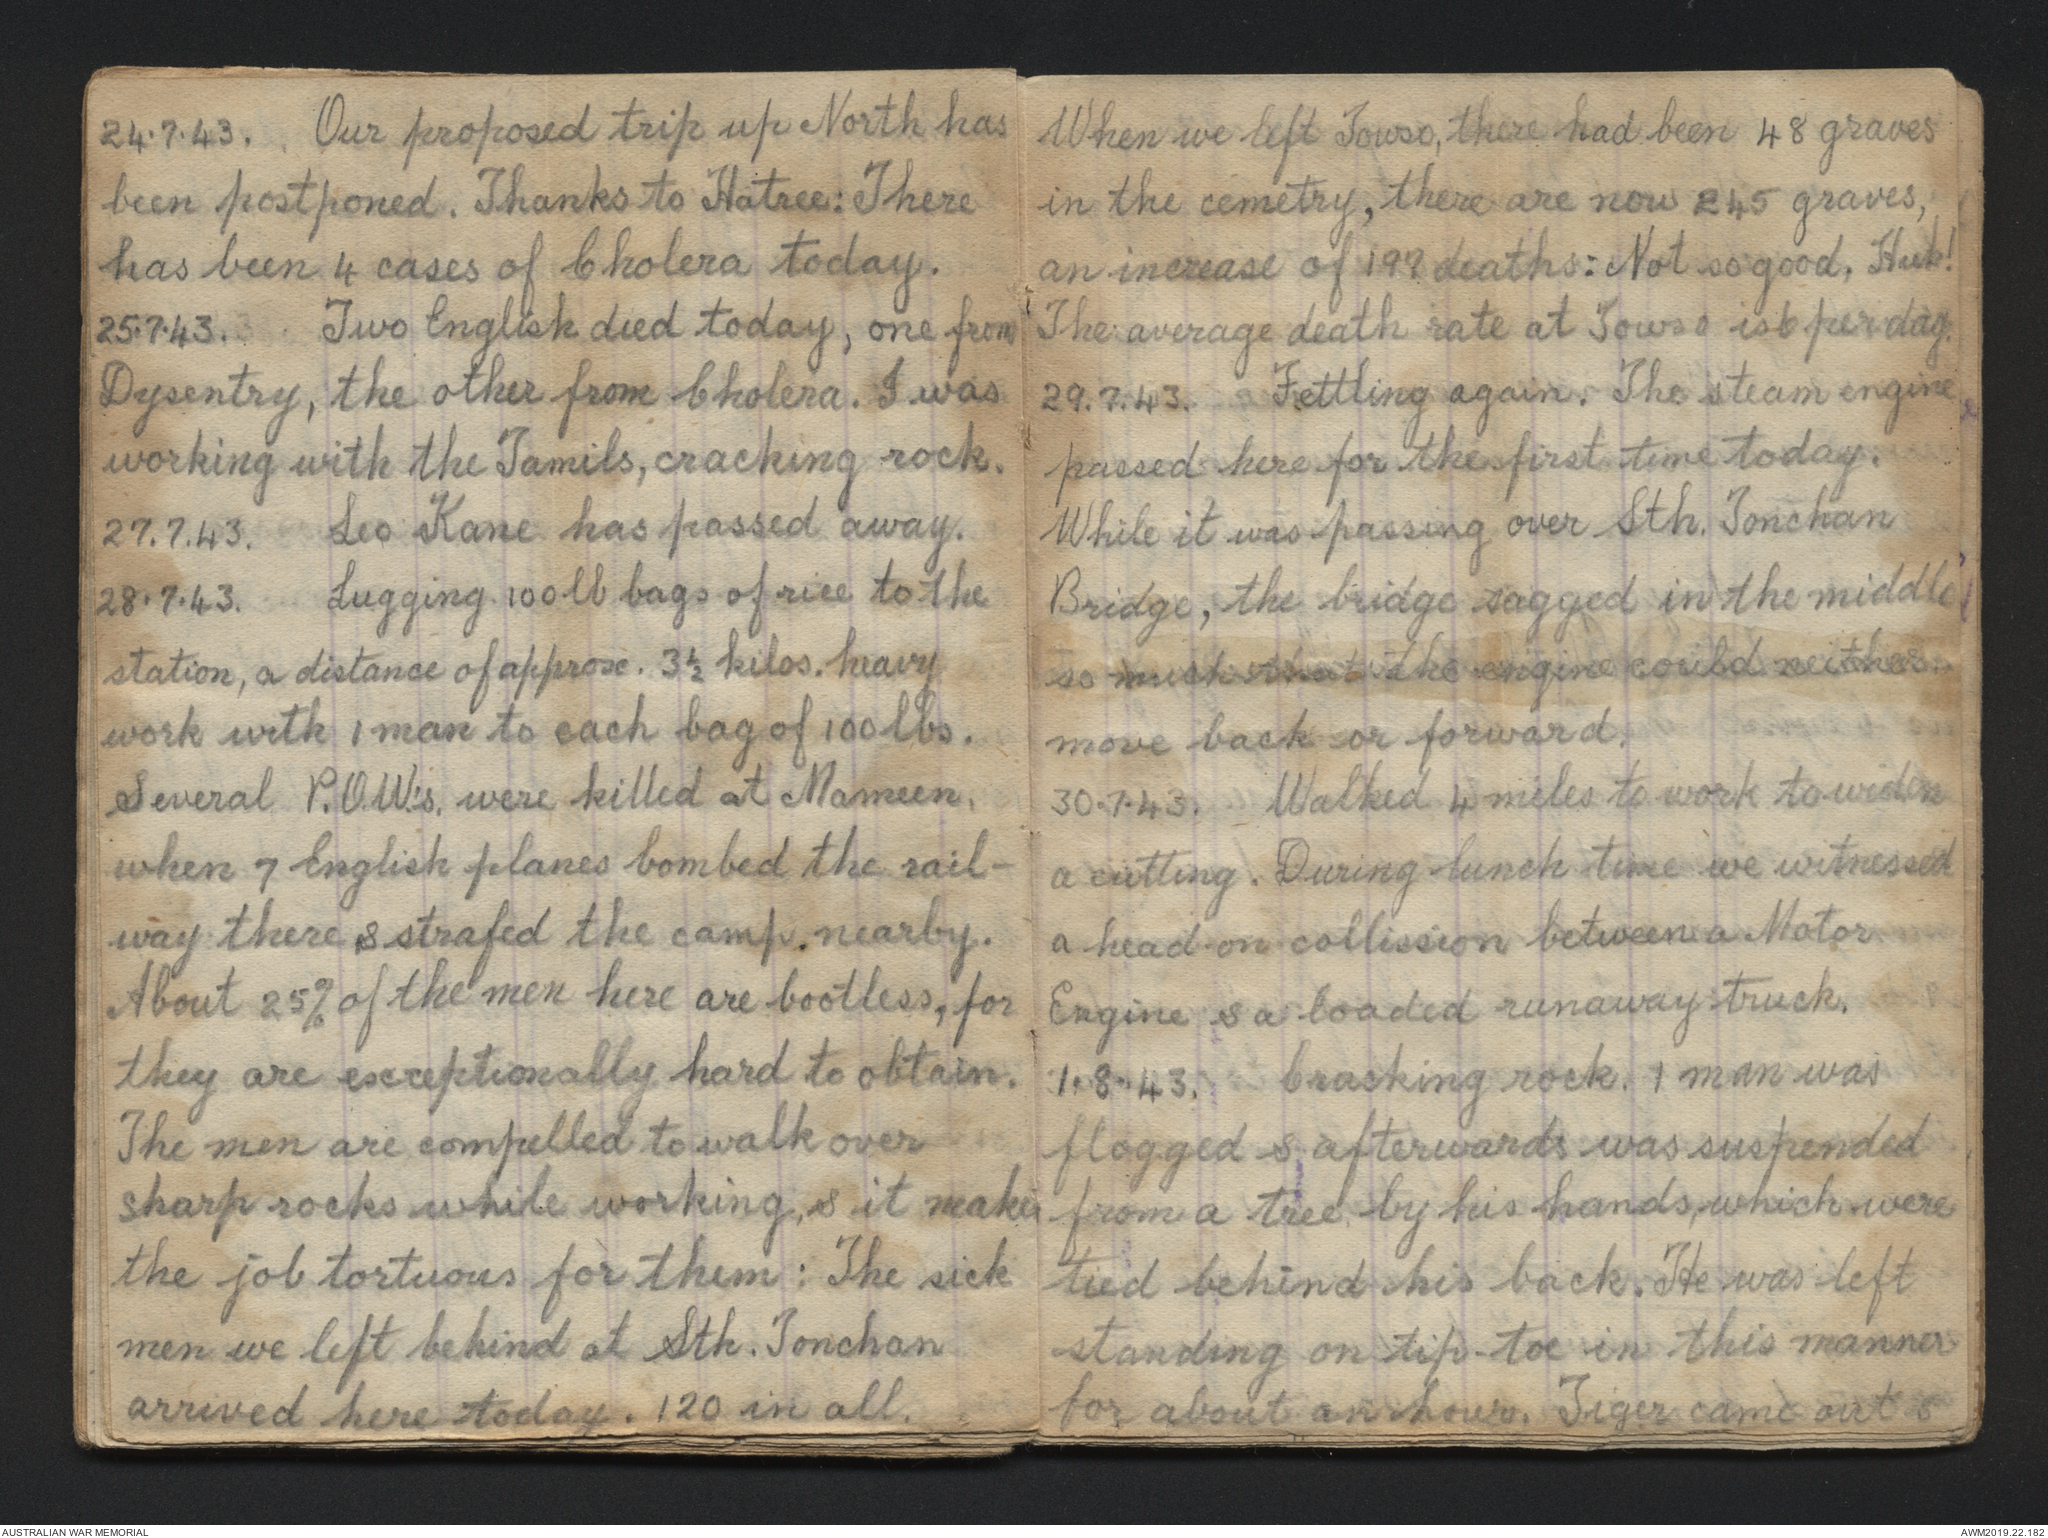 24.7.43. Our proposed trip up North has
been postponed. Thanks to Hatree: There
has been 4 cases of Cholera today.
25.7.43. Two English died today, one from
Dysentry, the other from Cholera. I was
working with the Tamils, cracking rock.
27.7.43. Leo Kane has passed away.
28.7.43. Lugging 100lb bags of rice to the
station, a distance of approx. 3½ kilos. heavy
work with 1 man to each bag of 100lbs.
Several P.O.W.'s. were killed at Mameen,
when 7 English planes bombed the rail-
way there & strafed the camp. nearby.
About 25% of the men here are bootless, for
they are exceptionally hard to obtain.
The men are compelled to walk over
sharp rocks while working, & it makes
the job tortuous for them: The sick
men we left behind at Sth. Tonchan
arrived here today. 120 in all.
When we left Towso, there had been 48 graves
in the cemetry, there are now 245 graves,
an increase of 197 deaths: Not so good, Huh!
The average death rate at Towso is 6 per day.
29.7.43. Fettling again. The steam engine
passed here for the first time today.
While it was passing over Sth. Tonchan
Bridge, the bridge sagged in the middle
so much that the engine could neither
move back or forward.
30.7.43. Walked 4 miles to work to widen
a cutting. During lunch time we witnessed
a head-on collission between a Motor
Engine & a loaded runaway truck.
1.8.43. Cracking rock. 1 man was
flogged & afterwards was suspended
from a tree by his hands, which were
tied behind his back. He was left
standing on tip-toe in this manner
for about an hour. Tiger came out &
AUSTRALIAN WAR MEMORIAL
AWM2019.22.182